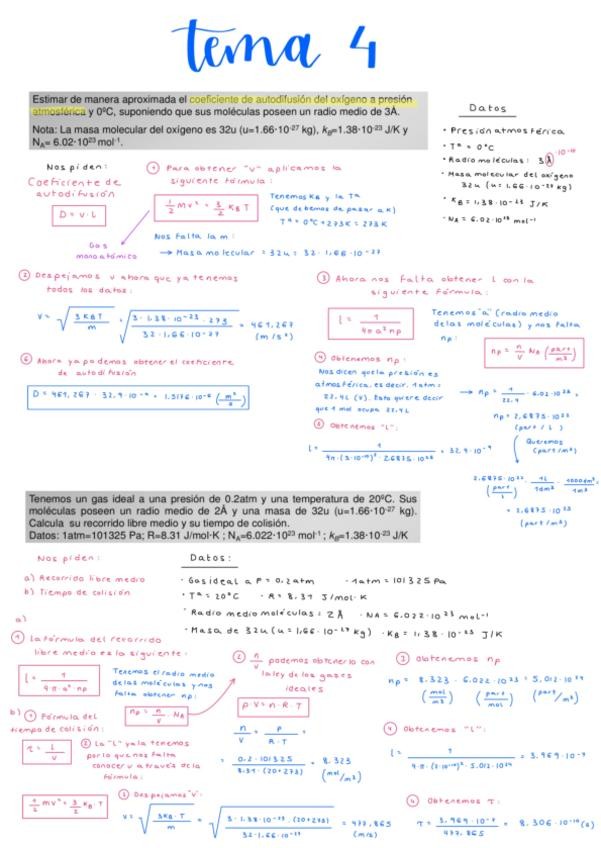 tema 4
Estimar de manera aproximada el coeficiente de autodifusión del oxígeno a presión
atmosférica y 0ºC, suponiendo que sus moléculas poseen un radio medio de 3Å.
Nota: La masa molecular del oxígeno es 32u (u=1.66·10⁻²⁷ kg), k_B=1.38·10⁻²³ J/K y
N_A= 6.02·10²³ mol⁻¹.
Datos
· Presión atmosférica
· Tª = 0ºC
· Radio moléculas: 3Å ·10⁻¹⁰
· Masa molecular del oxígeno
32u (u = 1,66·10⁻²⁷ kg)
· K_B = 1,38·10⁻²³ J/K
· N_A = 6.02·10²³ mol⁻¹
Nos piden:
Coeficiente de
autodifusión
D = v·l
① Para obtener "v" aplicamos la
siguiente fórmula:
1/2 mv² = 3/2 K_B T
Gas
monoatómico
Tenemos K_B y la Tª
(que debemos de pasar a K)
Tª = 0ºC + 273K = 273K
Nos falta la m:
→ Masa molecular = 32u = 32·1,66·10⁻²⁷
② Despejamos v ahora que ya tenemos
todos los datos:
v = √(3K_BT/m) = √(3·1.38·10⁻²³·273/32·1.66·10⁻²⁷) = 461,267
(m/s)
③ Ahora nos falta obtener l con la
siguiente fórmula:
l = 1/4πa²np
Tenemos "a" (radio medio
de las moléculas) y nos falta
np:
np = n/V N_A (part/m³)
⑥ Ahora ya podemos obtener el coeficiente
de autodifusión
D = 461,267 · 32,9·10⁻⁹ = 1.5176·10⁻⁵ (m²/s)
④ Obtenemos np:
Nos dicen que la presión es
atmosférica, es decir, 1 atm:
22.4L (V). Esto quiere decir
que 1 mol ocupa 22,4L
→ np = 1/22.4 · 6.02·10²³ =
np = 2,6875·10²²
(part/L)
Queremos
(part/m³)
2.6875·10²² (part/L) · 1L/1dm³ · 1000dm³/1m³
= 2,6875·10²⁵
(part/m³)
⑤ Obtenemos "l":
l = 1/4π·(3·10⁻¹⁰)²·2.6875·10²⁵ = 32,9·10⁻⁹
Tenemos un gas ideal a una presión de 0.2atm y una temperatura de 20ºC. Sus
moléculas poseen un radio medio de 2Å y una masa de 32u (u=1.66·10⁻²⁷ kg).
Calcula su recorrido libre medio y su tiempo de colisión.
Datos: 1atm=101325 Pa; R=8.31 J/mol·K ; N_A=6.022·10²³ mol⁻¹ ; k_B=1.38·10⁻²³ J/K
Nos piden:
a) Recorrido libre medio
b) Tiempo de colisión
Datos:
· Gas ideal a P = 0,2atm · 1atm = 101325 Pa
· Tª = 20ºC · R = 8,31 J/mol·K
· Radio medio moléculas: 2Å · NA = 6.022·10²³ mol⁻¹
· Masa de 32u (u = 1,66·10⁻²⁷ kg) · K_B = 1,38·10⁻²³ J/K
a)
① La fórmula del recorrido
libre medio es la siguiente:
l = 1/4·π·a²·np
Tenemos el radio medio
de las moléculas y nos
falta obtener np:
np = n/V · N_A
② n/V podemos obtenerlo con
la ley de los gases
ideales
P·V = n·R·T
n/V = P/R·T
= 0.2·101325/8.31·(20+273) = 8.323
(mol/m³)
③ Obtenemos np
np = 8.323 · 6.022·10²³ = 5,012·10²⁴
(mol/m³) (part/mol) (part/m³)
④ Obtenemos "l":
l = 1/4·π·(2·10⁻¹⁰)²·5.012·10²⁴ = 3.969·10⁻⁷
b) ① Fórmula del
tiempo de colisión:
τ = l/v
② La "l" ya la tenemos
por lo que nos falta
conocer v a través de la
fórmula:
1/2 mv² = 3/2 K_B·T
③ Despejamos "v":
v = √(3K_B·T/m) = √(3·1.38·10⁻²³·(20+273)/32·1.66·10⁻²⁷) = 477,865
(m/s)
④ Obtenemos τ:
τ = 3.969·10⁻⁷/477.865 = 8.306·10⁻¹⁰ (s)